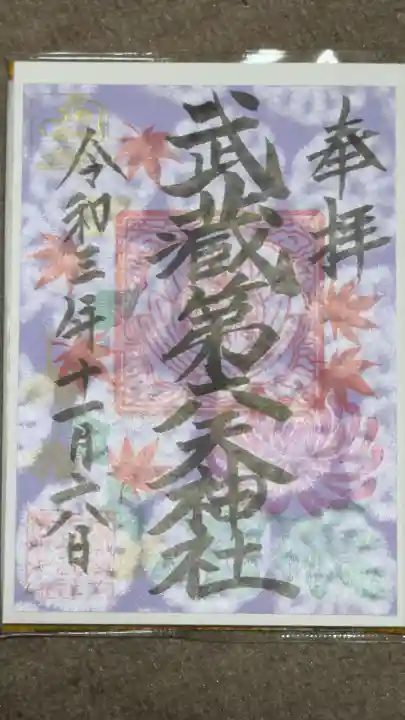 奉拝
武蔵第六天神社
令和三年十一月二八日